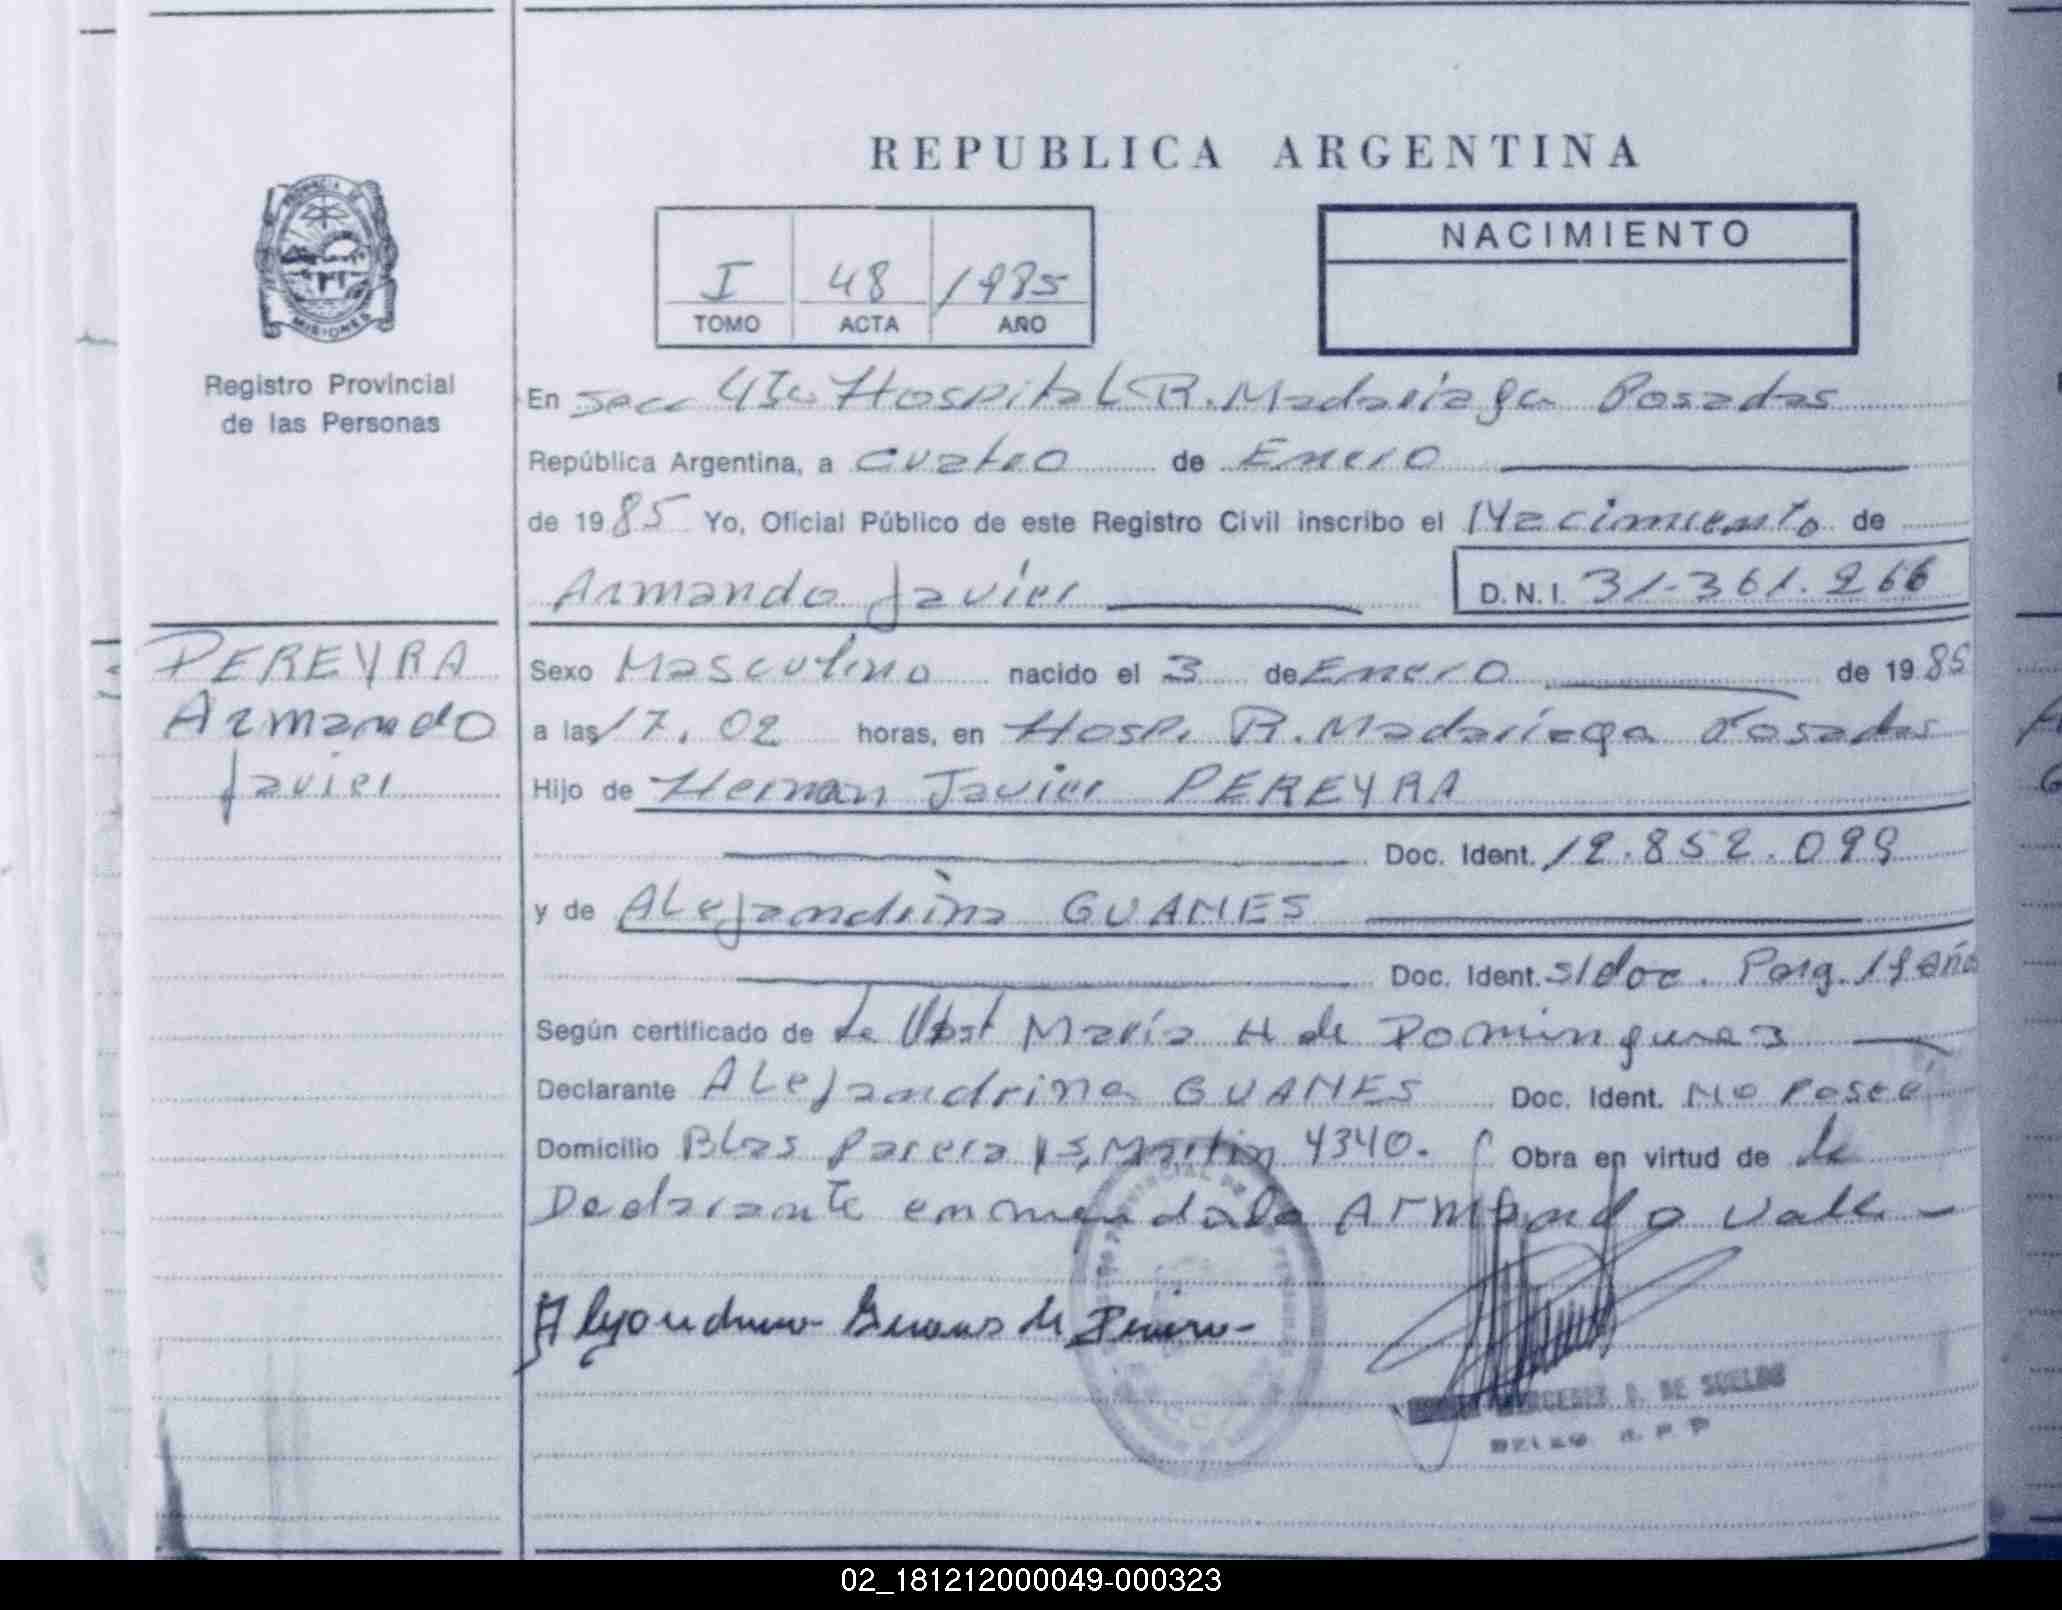 REPUBLICA ARGENTINA
NACIMIENTO
I 48 1985
TOMO ACTA AÑO
MISIONES
Registro Provincial
de las Personas
En Secc 4ta Hospital R. Madariaga Posadas
República Argentina, a cuatro de Enero
de 1985 Yo, Oficial Público de este Registro Civil inscribo el Nacimiento de
Armando Javier D.N.I. 31.361.266
PEREYRA
Armando
Javier
Sexo Masculino nacido el 3 de Enero de 1985
a las 17.02 horas, en Hosp. R. Madariaga Posadas
Hijo de Hernan Javier PEREYRA
Doc. Ident. 12.852.099
y de Alejandrina GUANES
Doc. Ident. s/doc. Parg. 19 año
Según certificado de la Obst María H de Dominguez
Declarante Alejandrina GUANES Doc. Ident. No Posee
Domicilio Blas Parera y S. Martin 4340. Obra en virtud de la
Declarante enmendado Armando Vale
de
DE SUELDO
02_181212000049-000323